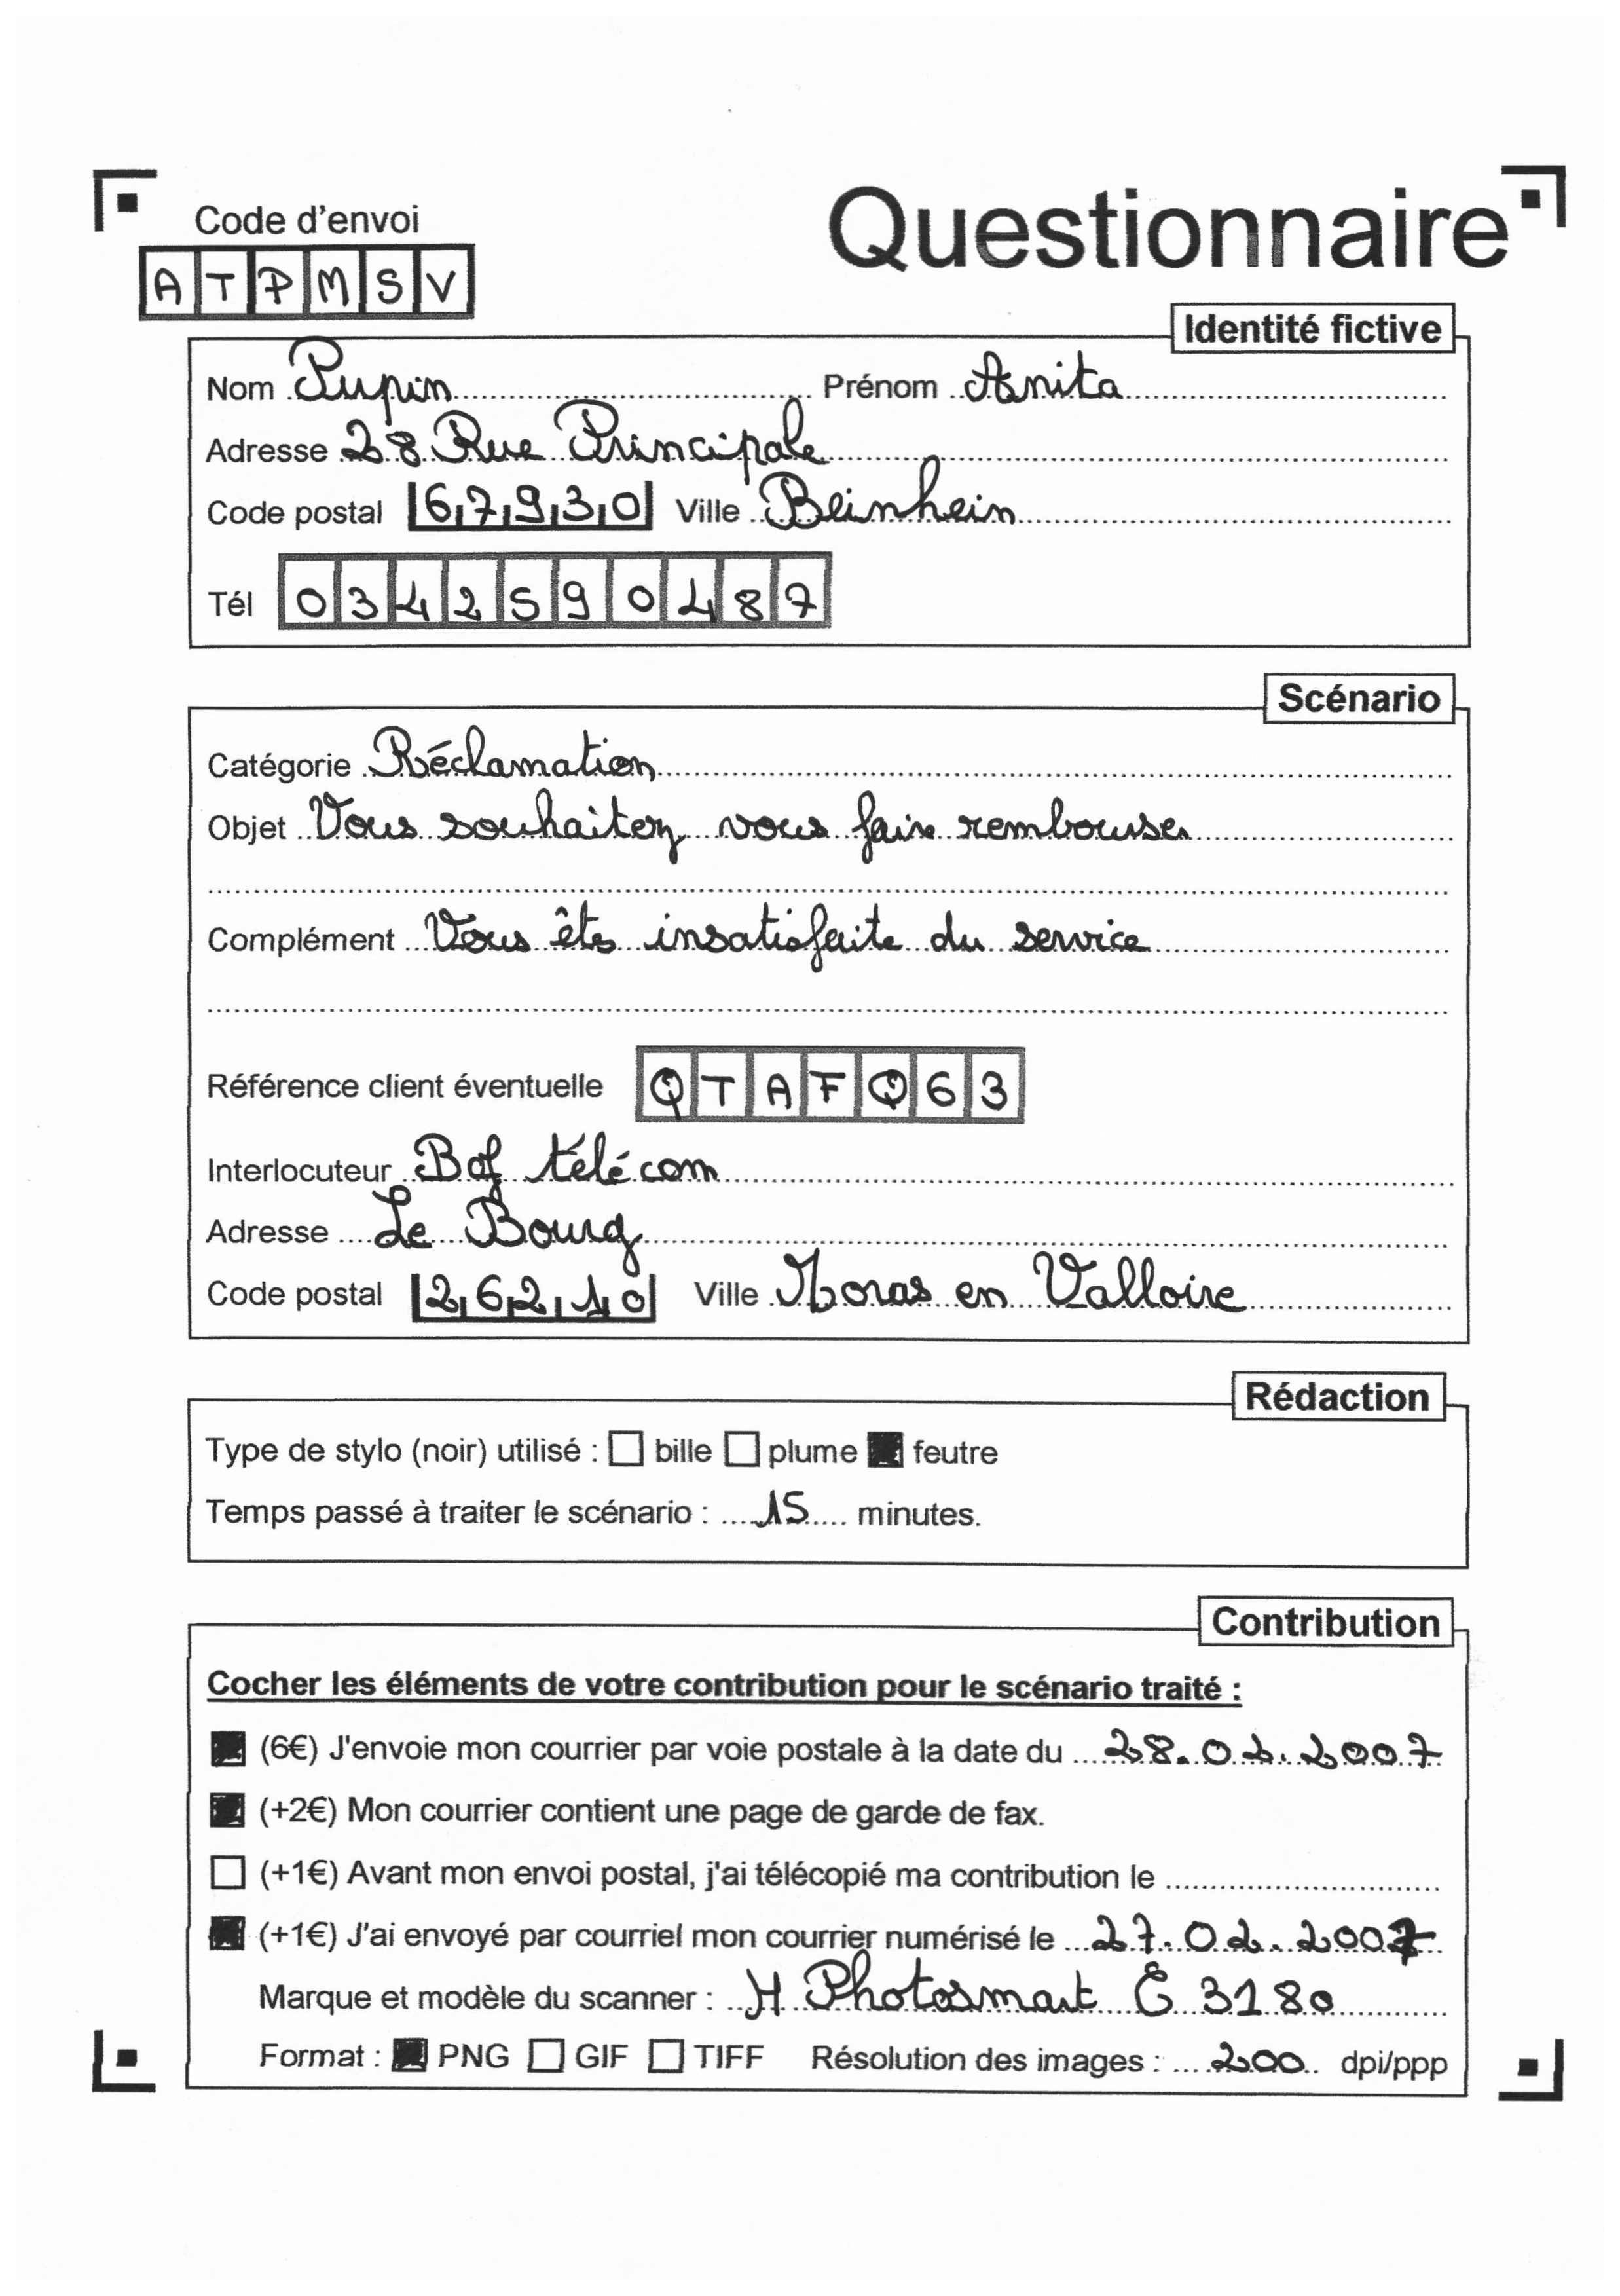 Code d'envoi
Questionnaire
A T P M S V
Identité fictive
Nom Pupin Prénom Anita
Adresse 28 Rue Principale
Code postal 67930 Ville Beinhein
Tél 0342590487
Scénario
Catégorie Réclamation
Objet Vous souhaitez vous faire rembourser
Complément Vous êtes insatisfaite du service
Référence client éventuelle QTAFQ63
Interlocuteur Bof télécom
Adresse Le Bourg
Code postal 26210 Ville Moras en Valloire
Rédaction
Type de stylo (noir) utilisé : bille plume feutre
Temps passé à traiter le scénario : 15 minutes.
Contribution
Cocher les éléments de votre contribution pour le scénario traité :
(6€) J'envoie mon courrier par voie postale à la date du 28.02.2007
(+2€) Mon courrier contient une page de garde de fax.
(+1€) Avant mon envoi postal, j'ai télécopié ma contribution le
(+1€) J'ai envoyé par courriel mon courrier numérisé le 27.02.2007
Marque et modèle du scanner : H Photosmart C 3180
Format : PNG GIF TIFF Résolution des images : 200 dpi/ppp